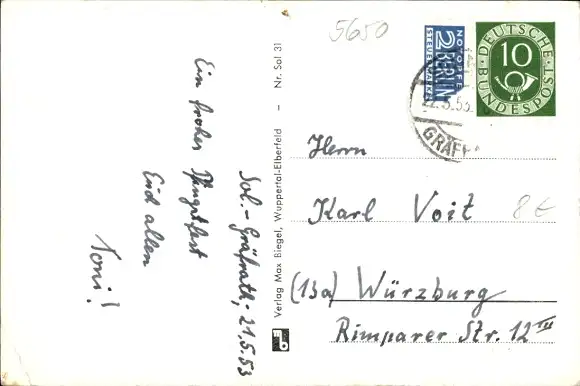 5650
NOTOPFER
2 BERLIN
STEUERMARKE
DEUTSCHE
10
BUNDESPOST
22.5.53
GRÄF
Sol.-Gräfrath, 21.5.53
Ein frohes
Pfingstfest
Euch allen
Toni!
Verlag Max Biegel, Wuppertal-Elberfeld – Nr. Sol 31
Herrn
Karl Voit
8€
(13a) Würzburg
Rimparer Str. 12 III